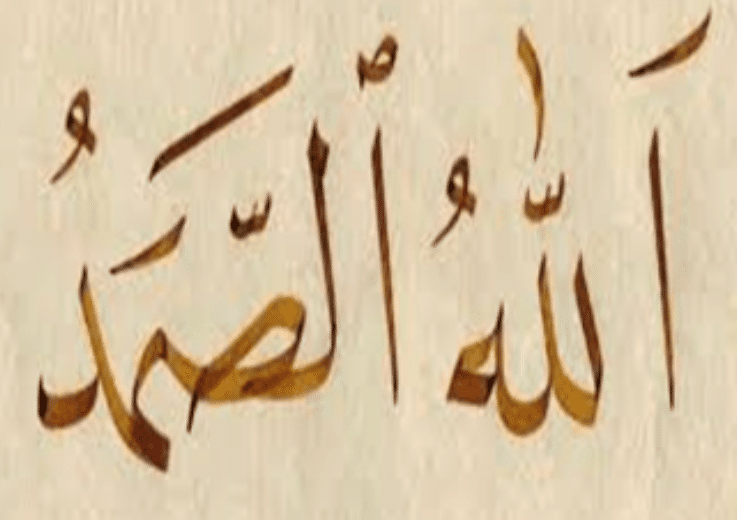 اَللّٰهُ ٱلصَّمَدُ